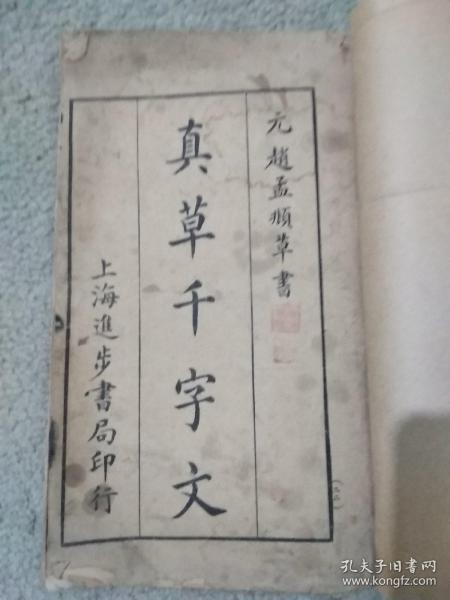 元趙孟頫草書
真草千字文
上海進步書局印行
孔夫子旧书网
www.kongfz.com